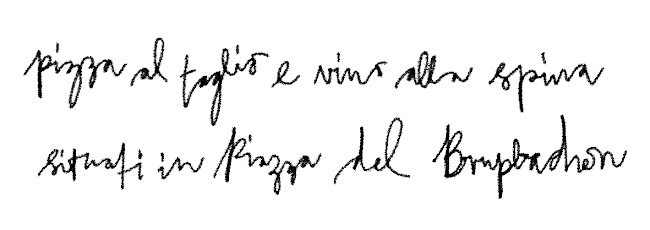 pizza al taglio e vino alla spina
situati in Piazza del